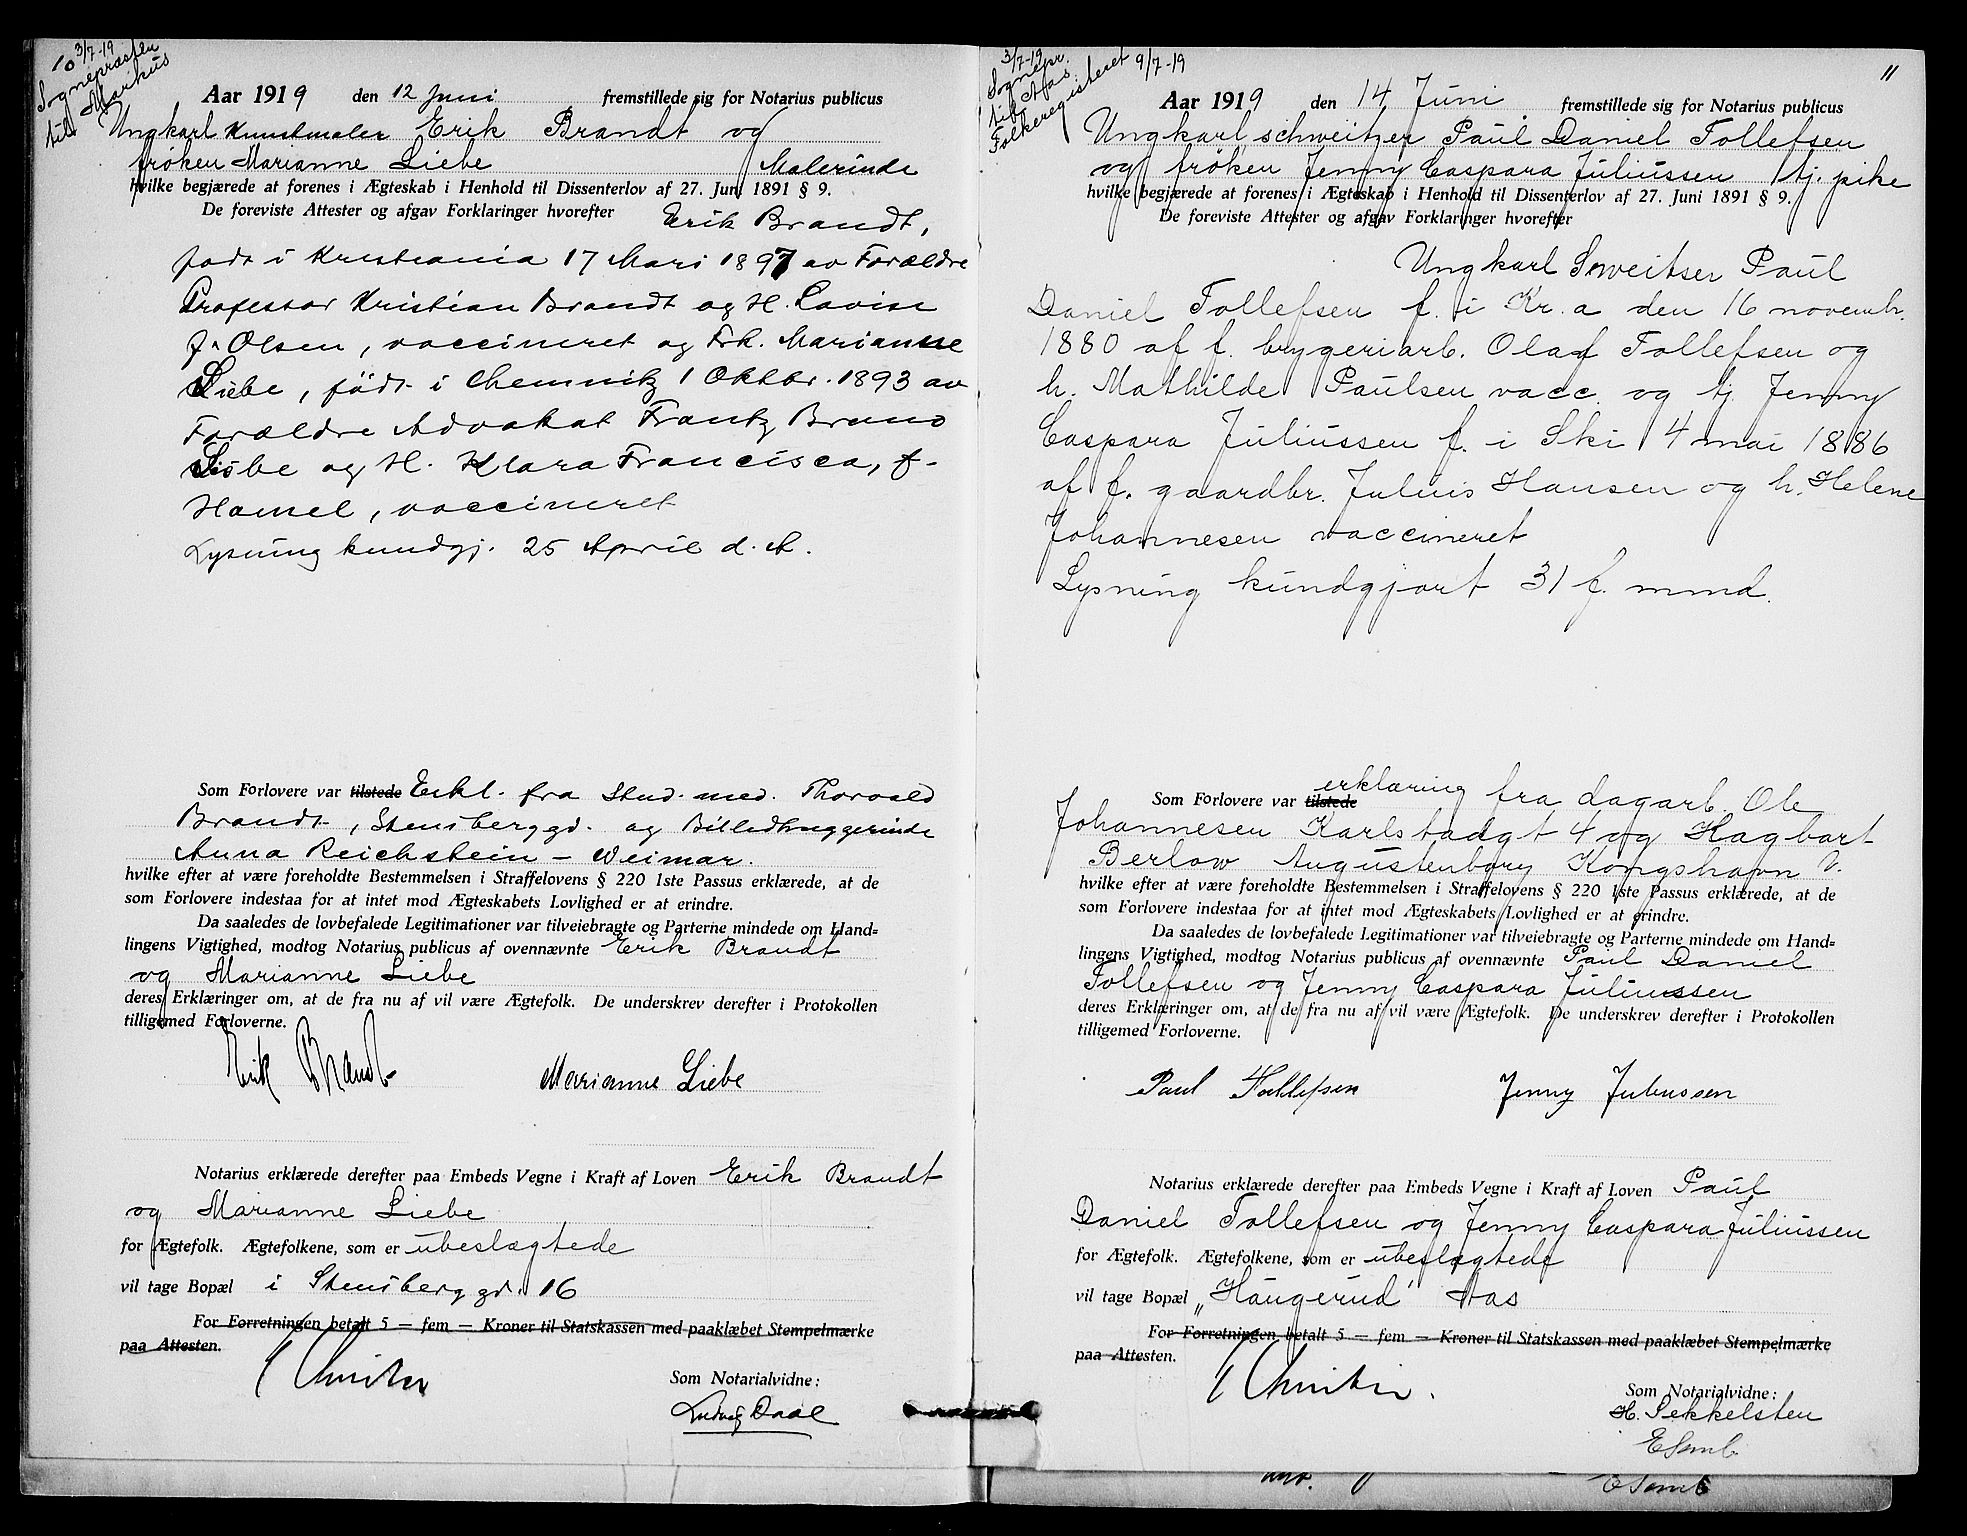 10 3/7-19
Sognepræsten
til Markus
Aar 1919 den 12 Juni fremstillede sig for Notarius publicus
Ungkarl Kunstmaler Erik Brandt og
frøken Marianne Liebe Malerinde
hvilke begjærede at forenes i Ægteskab i Henhold til Dissenterlov af 27. Juni 1891 § 9.
De foreviste Attester og afgav Forklaringer hvorefter Erik Brandt,
født i Kristiania 17 Mars 1897 av Forældre
Professor Kristian Brandt og H. Lovise
f. Olsen, vaccineret og Frk. Marianne
Liebe, födt i Chemnitz 1 Oktbr. 1893 av
Forældre Advokat Frantz Bruno
Liebe og H. Klara Francisca, f.
Hamel, vaccineret
Lysning kundgj. 25 April d. A.
Som Forlovere var tilstede Erkl. fra Stud. med. Thorvald
Brandt, Stensberggd. og Billedhuggerinde
Anna Reichstein - Weimar.
hvilke efter at være foreholdte Bestemmelsen i Straffelovens § 220 1ste Passus erklærede, at de
som Forlovere indestaa for at intet mod Ægteskabets Lovlighed er at erindre.
Da saaledes de lovbefalede Legitimationer var tilveiebragte og Parterne mindede om Hand=
lingens Vigtighed, modtog Notarius publicus af ovennævnte Erik Brandt
og Marianne Liebe
deres Erklæringer om, at de fra nu af vil være Ægtefolk. De underskrev derefter i Protokollen
tilligemed Forloverne.
Erik Brandt Marianne Liebe
Notarius erklærede derefter paa Embeds Vegne i Kraft af Loven Erik Brandt
og Marianne Liebe
for Ægtefolk. Ægtefolkene, som er ubeslægtede
vil tage Bopæl i Stensberg gd. 16
For Forretningen betalt 5 — fem — Kroner til Statskassen med paaklæbet Stempelmærke
paa Attesten.
Som Notarialvidne:
Ludvig Daae
3/7-19
Sognepr.
til Aas
Folkeregisteret 9/7-19
11
Aar 1919 den 14 Juni fremstillede sig for Notarius publicus
Ungkarl schweitzer Paul Daniel Tollefsen
og frøken Jenny Caspara Juliussen tj. pike
hvilke begjærede at forenes i Ægteskab i Henhold til Dissenterlov af 27. Juni 1891 § 9.
De foreviste Attester og afgav Forklaringer hvorefter
Ungkarl Sweitser Paul
Daniel Tollefsen f. i Kr.a den 16 novembr.
1880 af f. bryggeriarb. Olaf Tollefsen og
h. Mathilde Paulsen vacc. og tj. Jenny
Caspara Juliussen f. i Ski 4 mai 1886
af f. gaardbr. Julius Hansen og h. Helene
Johannesen vaccineret
Lysning kundgjort 31 f. mmd.
Som Forlovere var tilstede erklæring fra dagarb. Ole
Johannesen Karlstadgt 4 og Hagbart
Berlow Augustenborg Kongshavn V.
hvilke efter at være foreholdte Bestemmelsen i Straffelovens § 220 1ste Passus erklærede, at de
som Forlovere indestaa for at intet mod Ægteskabets Lovlighed er at erindre.
Da saaledes de lovbefalede Legitimationer var tilveiebragte og Parterne mindede om Hand=
lingens Vigtighed, modtog Notarius publicus af ovennævnte Paul Daniel
Tollefsen og Jenny Caspara Juliussen
deres Erklæringer om, at de fra nu af vil være Ægtefolk. De underskrev derefter i Protokollen
tilligemed Forloverne.
Paul Tollefsen Jenny Juliussen
Notarius erklærede derefter paa Embeds Vegne i Kraft af Loven Paul
Daniel Tollefsen og Jenny Caspara Juliussen
for Ægtefolk. Ægtefolkene, som er ubeslægtede
vil tage Bopæl „Haugerud" Aas
For Forretningen betalt 5 — fem — Kroner til Statskassen med paaklæbet Stempelmærke
paa Attesten.
Som Notarialvidne:
H. Sekkelsten
E Semb
E Semb